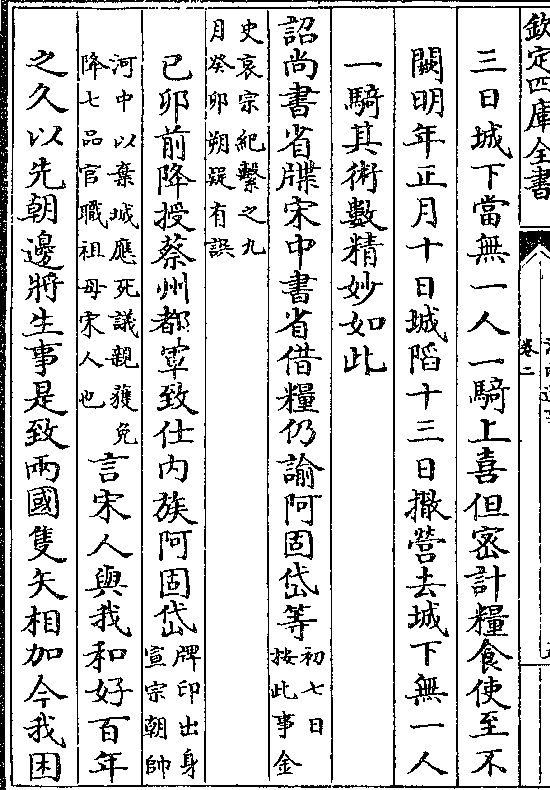 欽定四庫全書
卷二
三日城下當無一人一騎上喜但密計糧食使至不
闕明年正月十日城䧟十三日撤營去城下無一人
一騎其術數精妙如此
詔尚書省牒宋中書省借糧仍諭阿固岱等初七日按此事金
史哀宗紀繫之九月癸卯朔疑有誤
已卯前降授蔡州都軍致仕内族阿固岱牌印出身宣宗朝帥
河中以棄城應死議親獲免降七品官職祖母宋人也言宋人與我和好百年
之久以先朝邊將生事是致兩國隻矢相加今我困